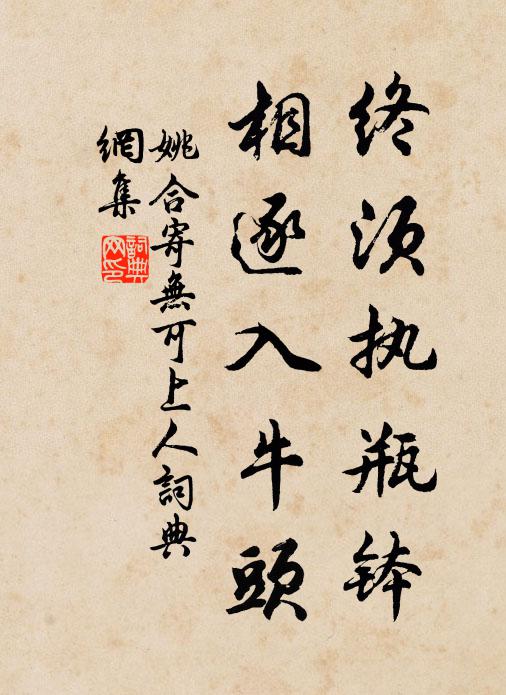 终须执瓶钵
相逐入牛頭
姚合寄無可上人詞典
網集
詞典
网印